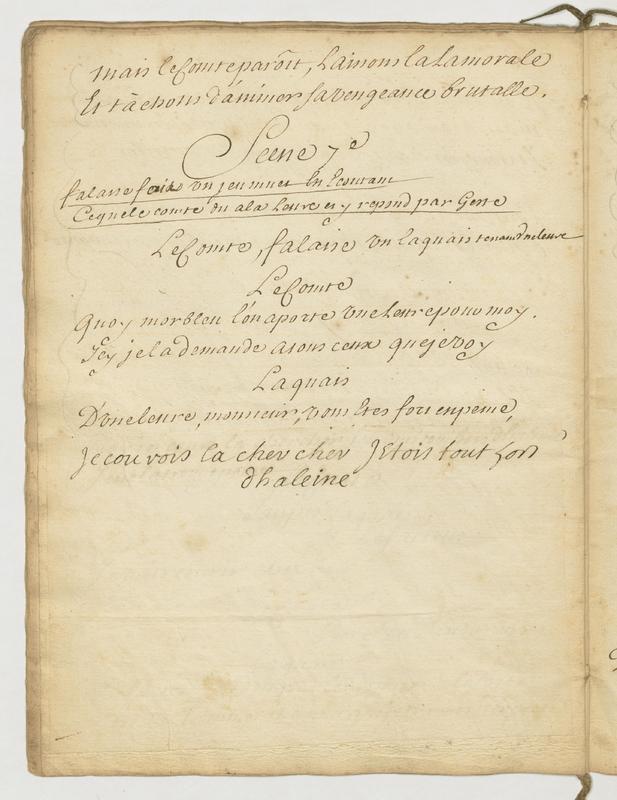 mais le Comte parôit, Laissons la La morale
Et tâchons d'animer sa vengeance brutalle.
Scene 7e
falaise fait un jeu muet En Ecoutant
Ce que le comte dit a la Lettre et y repond par Geste
Le Comte, falaise un laquais tenant une lettre
Le Comte
Quoy morbleu l'on aporte une Lettre pour moy.
Icy je la demande a tous ceux que je voy
Laquais
D'une lettre, monsieur, vous Etes fort en peine,
Je courois la chercher J'Etois tout hors
d'haleine